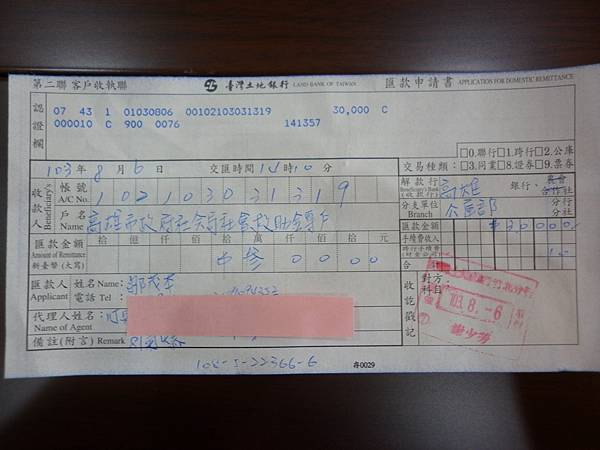 第二聯 客戶收執聯 臺灣土地銀行 LAND BANK OF TAIWAN 匯款申請書 APPLICATION FOR DOMESTIC REMITTANCE
認證欄
07 43 1 01030806 00102103031319 30,000 C
000010 C 900 0076 141357
□0.聯行□1.跨行□2.公庫
交易種類：□3.同業□8.證券□9.票券
103年 8月 6日 交匯時間 14時10分
收款人 Beneficiary's
帳號 A/C No. 102103031319
解款行 Beneficiary's Bank (收款行) 高雄 銀行、農會 合作社
戶名 Name 高雄市政府社會局社會救助金專戶
分支單位 Branch 公庫部 分行 分社
匯款金額 Amount of Remittance 新臺幣(大寫)
拾 億 仟 佰 拾 萬 仟 佰 拾 元
參 0 0 0 0
匯款金額 30000
手續費收入
跨行手續費 10
合計
匯款人 Applicant 姓名Name:
電話 Tel
代理人姓名: Name of Agent
備註(附言) Remark
收訖戳記
對方科目:
103.8.-6
104-5-22366-6
存0029